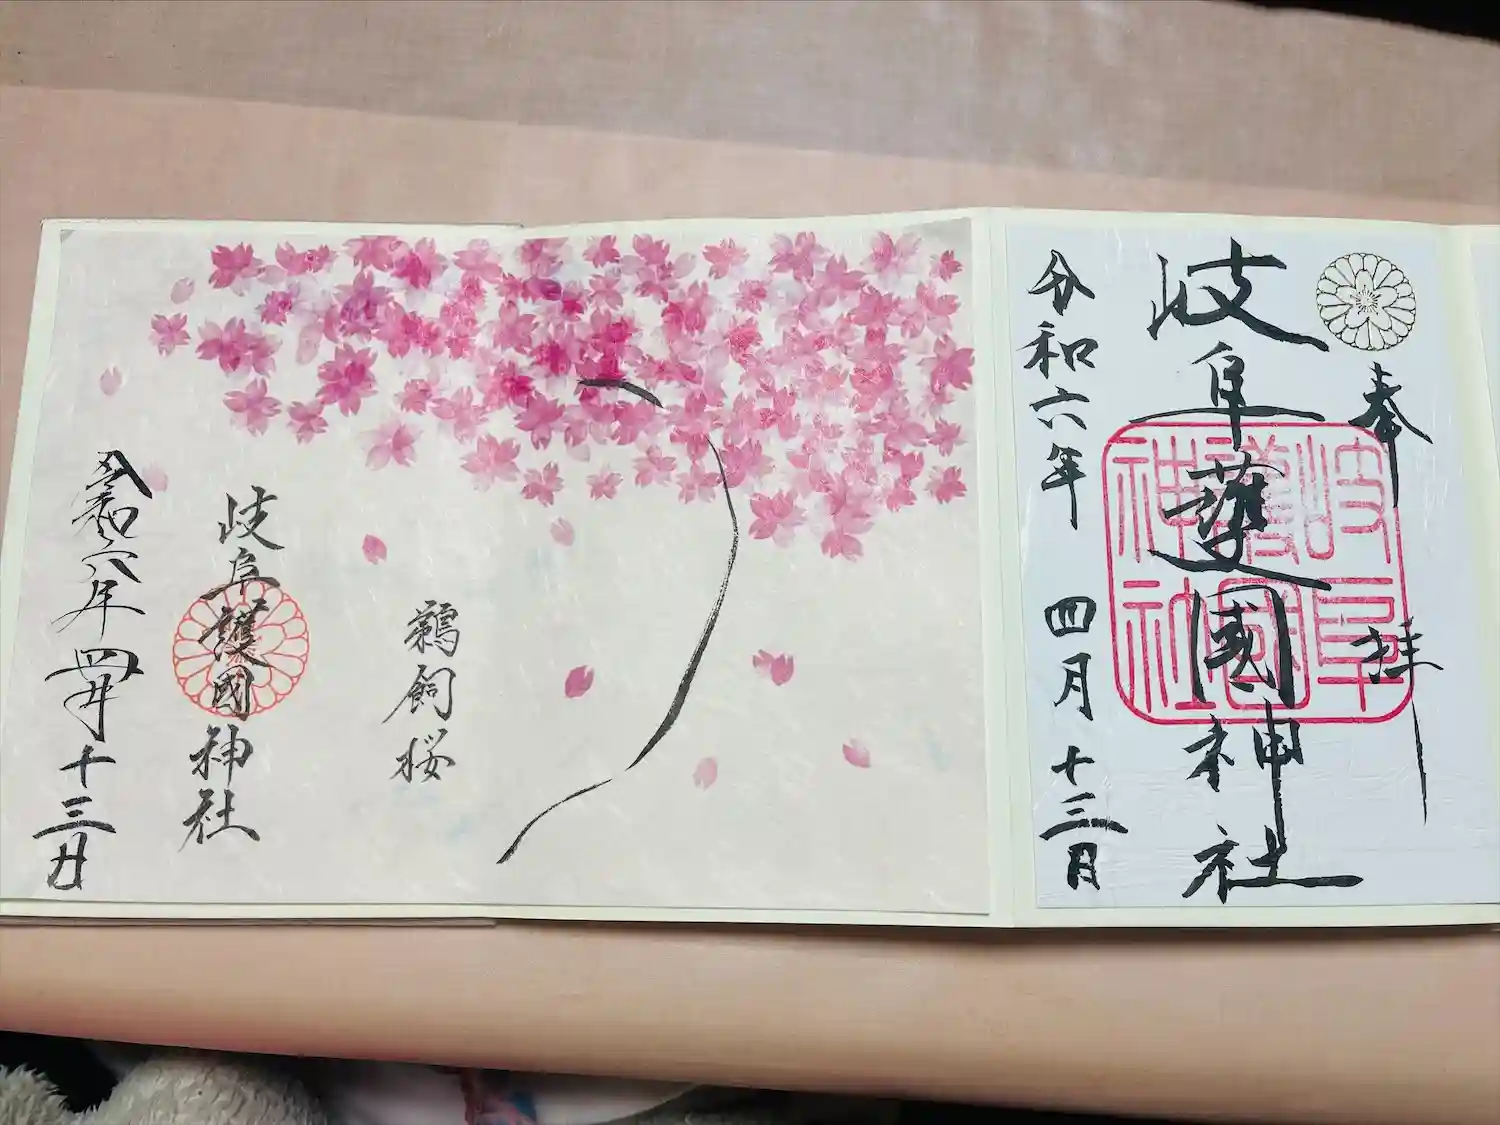 奉拝
岐阜護國神社
岐阜護國神社
令和六年 四月十三日
鵜飼桜
岐阜護國神社
令和六年四月十三日